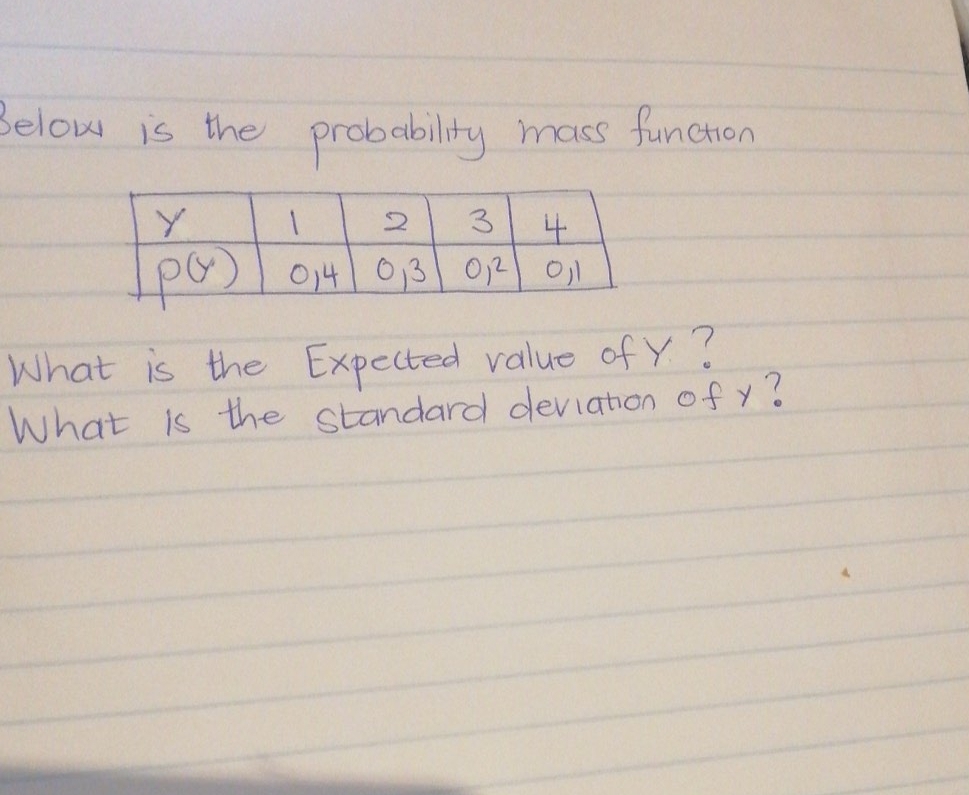 Below is the probability mass function
Y 1 2 3 4
P(Y) 0,4 0,3 0,2 0,1
What is the Expected value of Y?
What is the standard deviation of Y?